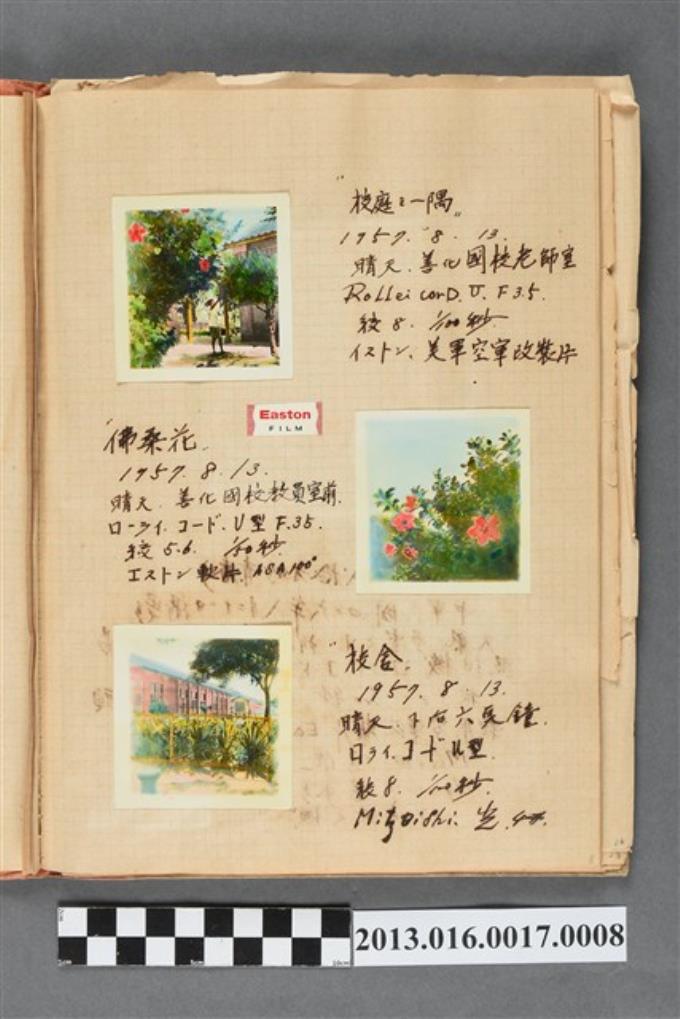 "校庭之一隅"
1957. 8. 13.
晴天. 善化國校老師室
Rolleicord. U. F3.5.
絞 8. 1/100秒.
イストン、美軍空軍改裝片
Easton
FILM
佛桑花.
1957. 8. 13.
晴天. 善化國校教員室前.
ローライ. コード. U型 F.35.
絞 5.6. 1/50秒.
エストン 軟片. ASA100°
"校舍.
1957. 8. 13.
晴天. 下后六点鐘.
ロライ.コード U型.
絞 8. 1/100秒.
2013.016.0017.0008